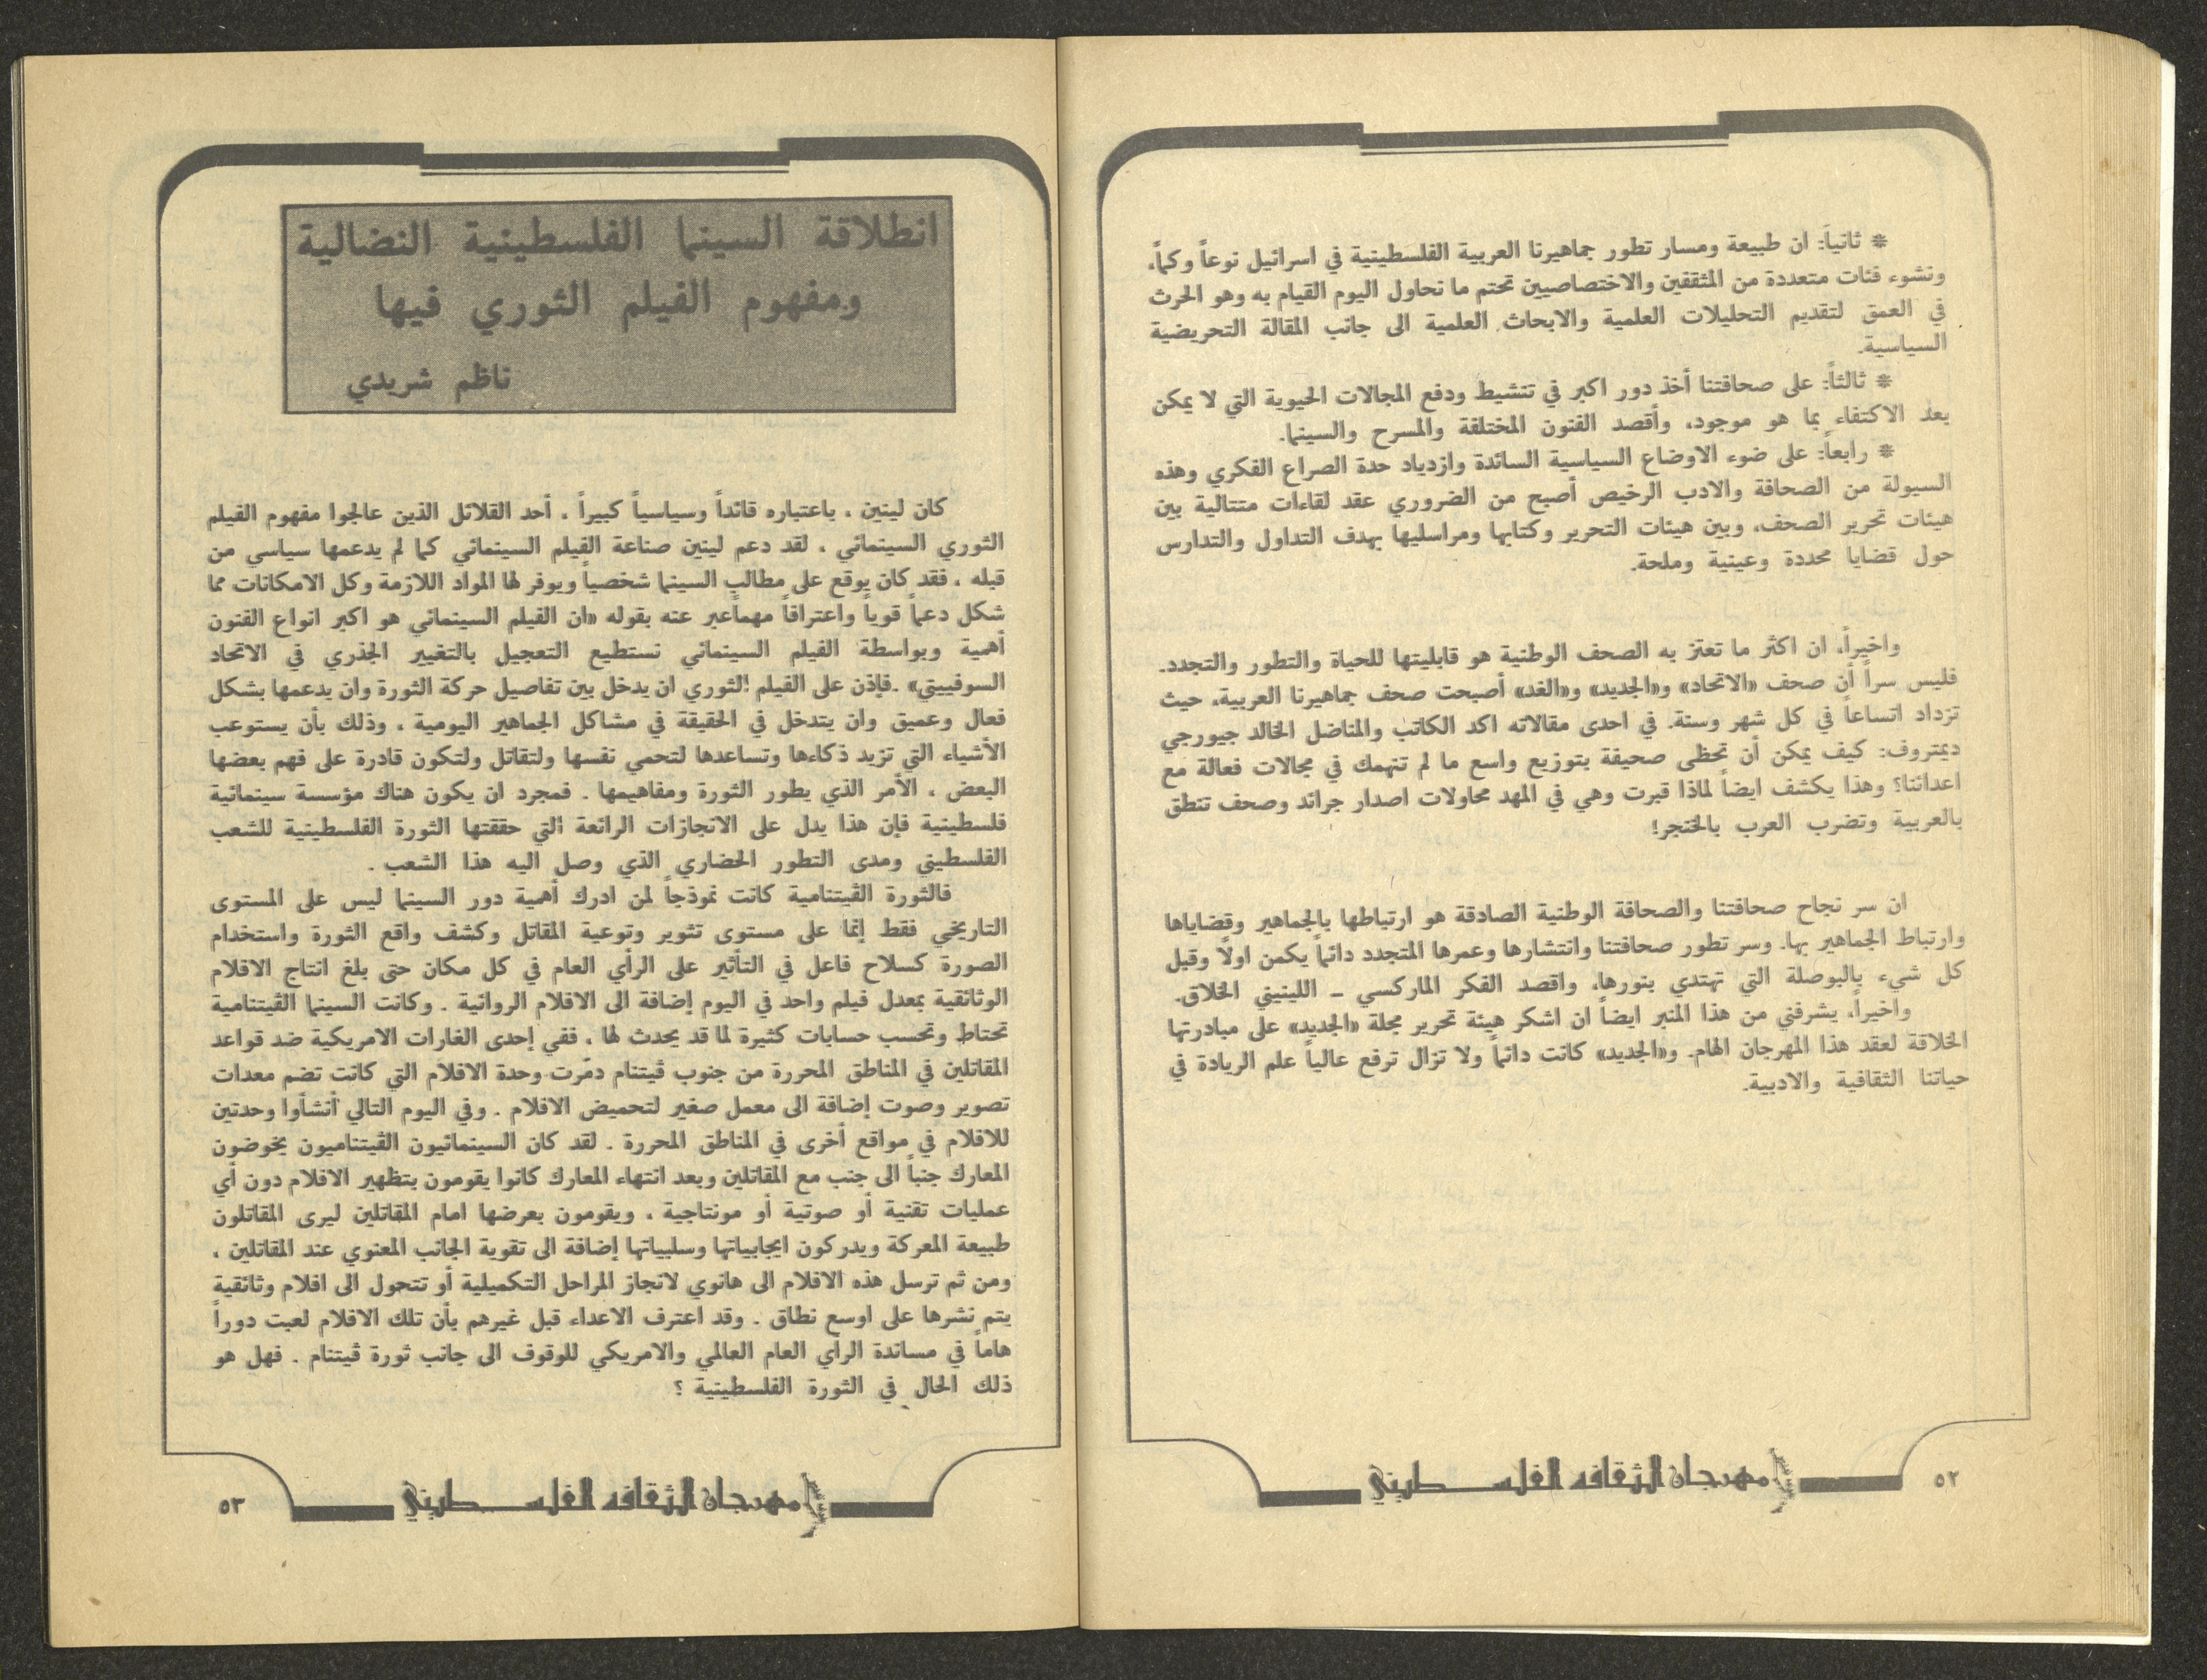 * ثانياً: ان طبيعة ومسار تطور جماهيرنا العربية الفلسطينية في اسرائيل نوعاً وكماً،
ونشوء فئات متعددة من المثقفين والاختصاصيين تحتم ما نحاول اليوم القيام به وهو الحرث
في العمق لتقديم التحليلات العلمية والابحاث العلمية الى جانب المقالة التحريضية
السياسية.
* ثالثاً: على صحافتنا أخذ دور اكبر في تنشيط ودفع المجالات الحيوية التي لا يمكن
بعد الاكتفاء بما هو موجود، وأقصد الفنون المختلفة والمسرح والسينما.
* رابعاً: على ضوء الاوضاع السياسية السائدة وازدياد حدة الصراع الفكري وهذه
السيولة من الصحافة والادب الرخيص أصبح من الضروري عقد لقاءات متتالية بين
هيئات تحرير الصحف، وبين هيئات التحرير وكتابها ومراسليها بهدف التداول والتدارس
حول قضايا محددة وعينية وملحة.
واخيراً، ان اكثر ما تعتز به الصحف الوطنية هو قابليتها للحياة والتطور والتجدد.
فليس سراً أن صحف «الاتحاد» و«الجديد» و«الغد» أصبحت صحف جماهيرنا العربية، حيث
تزداد اتساعاً في كل شهر وسنة. في احدى مقالاته اكد الكاتب والمناضل الخالد جيورجي
ديمتروف: كيف يمكن أن تحظى صحيفة بتوزيع واسع ما لم تنهمك في مجالات فعالة مع
اعدائنا؟ وهذا يكشف ايضاً لماذا قبرت وهي في المهد محاولات اصدار جرائد وصحف تنطق
بالعربية وتضرب العرب بالخنجر!
ان سر نجاح صحافتنا والصحافة الوطنية الصادقة هو ارتباطها بالجماهير وقضاياها
وارتباط الجماهير بها. وسر تطور صحافتنا وانتشارها وعمرها المتجدد دائماً يكمن اولاً وقبل
كل شيء بالبوصلة التي تهتدي بنورها، واقصد الفكر الماركسي ــ اللينيني الخلاق.
واخيراً، يشرفني من هذا المنبر ايضاً ان اشكر هيئة تحرير مجلة «الجديد» على مبادرتها
الخلاقة لعقد هذا المهرجان الهام. و«الجديد» كانت دائماً ولا تزال ترفع عالياً علم الريادة في
حياتنا الثقافية والادبية.
٥٢ مهرجان الثقافه الفلسطيني
انطلاقة السينما الفلسطينية النضالية
ومفهوم الفيلم الثوري فيها
ناظم شريدي
كان لينين ، باعتباره قائداً وسياسياً كبيراً ، أحد القلائل الذين عالجوا مفهوم الفيلم
الثوري السينمائي ، لقد دعم لينين صناعة الفيلم السينمائي كما لم يدعمها سياسي من
قبله ، فقد كان يوقع على مطالب السينما شخصياً ويوفر لها المواد اللازمة وكل الامكانات مما
شكل دعماً قوياً واعترافاً مهماً عبر عنه بقوله «ان الفيلم السينمائي هو اكبر انواع الفنون
أهمية وبواسطة الفيلم السينمائي نستطيع التعجيل بالتغيير الجذري في الاتحاد
السوفييتي» . فإذن على الفيلم الثوري ان يدخل بين تفاصيل حركة الثورة وان يدعمها بشكل
فعال وعميق وان يتدخل في الحقيقة في مشاكل الجماهير اليومية ، وذلك بأن يستوعب
الأشياء التي تزيد ذكاءها وتساعدها لتحمي نفسها ولتقاتل ولتكون قادرة على فهم بعضها
البعض ، الأمر الذي يطور الثورة ومفاهيمها . فمجرد ان يكون هناك مؤسسة سينمائية
فلسطينية فإن هذا يدل على الانجازات الرائعة التي حققتها الثورة الفلسطينية للشعب
الفلسطيني ومدى التطور الحضاري الذي وصل اليه هذا الشعب .
فالثورة الڤيتنامية كانت نموذجاً لمن ادرك أهمية دور السينما ليس على المستوى
التاريخي فقط إنما على مستوى تثوير وتوعية المقاتل وكشف واقع الثورة واستخدام
الصورة كسلاح فاعل في التأثير على الرأي العام في كل مكان حتى بلغ انتاج الافلام
الوثائقية بمعدل فيلم واحد في اليوم إضافة الى الافلام الروائية . وكانت السينما الڤيتنامية
تحتاط وتحسب حسابات كثيرة لما قد يحدث لها ، ففي إحدى الغارات الامريكية ضد قواعد
المقاتلين في المناطق المحررة من جنوب ڤيتنام دمّرت وحدة الافلام التي كانت تضم معدات
تصوير وصوت إضافة الى معمل صغير لتحميض الافلام . وفي اليوم التالي أنشأوا وحدتين
للافلام في مواقع أخرى في المناطق المحررة . لقد كان السينمائيون الڤيتناميون يخوضون
المعارك جنباً الى جنب مع المقاتلين وبعد انتهاء المعارك كانوا يقومون بتظهير الافلام دون أي
عمليات تقنية أو صوتية أو مونتاجية ، ويقومون بعرضها امام المقاتلين ليرى المقاتلون
طبيعة المعركة ويدركون ايجابياتها وسلبياتها إضافة الى تقوية الجانب المعنوي عند المقاتلين ،
ومن ثم ترسل هذه الافلام الى هانوي لانجاز المراحل التكميلية أو تتحول الى افلام وثائقية
يتم نشرها على اوسع نطاق . وقد اعترف الاعداء قبل غيرهم بأن تلك الافلام لعبت دوراً
هاماً في مساندة الرأي العام العالمي والامريكي للوقوف الى جانب ثورة ڤيتنام . فهل هو
ذلك الحال في الثورة الفلسطينية ؟
مهرجان الثقافه الفلسطيني ٥٣